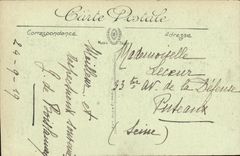 Carte Postale
Correspondance
Adresse
24-9-19
Meilleur et
respectueux souvenir
G. de
Mademoiselle
Lecœur
53 ter Av. de la Défense
Puteaux
(Seine)